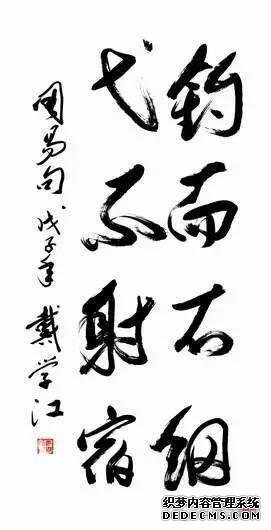 钓而不纲
弋不射宿
周易句 戊子年 戴学江
织梦内容管理系统
DEDECMS.COM